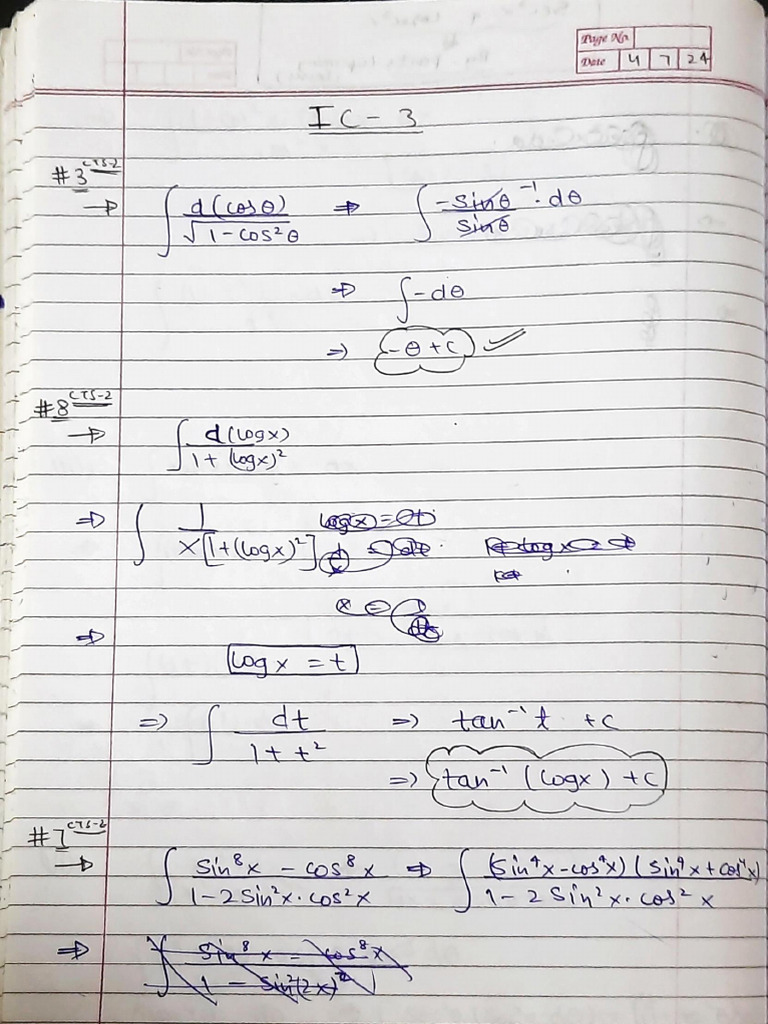 Page No.
Date 4 7 24
IC-3
#3 CTS-2
→ ∫ d(cosθ)/√1-cos²θ ⇒ ∫ -sinθ⁻¹·dθ/sinθ
⇒ ∫-dθ
⇒ -θ+c ✓
#8 CTS-2
→ ∫ d(logx)/1+(logx)²
⇒ ∫ 1/x[1+(logx)²]
⇒
logx = t
⇒ ∫ dt/1+t² ⇒ tan⁻¹ t + c
⇒ tan⁻¹ (logx) + c
#7 CTS-2
→ ∫ sin⁸x - cos⁸x/1-2sin²x·cos²x ⇒ ∫ (sin⁴x-cos⁴x)(sin⁴x+cos⁴x)/1-2sin²x·cos²x
⇒ ∫ sin⁸x - cos⁸x/1 - sin²(2x)